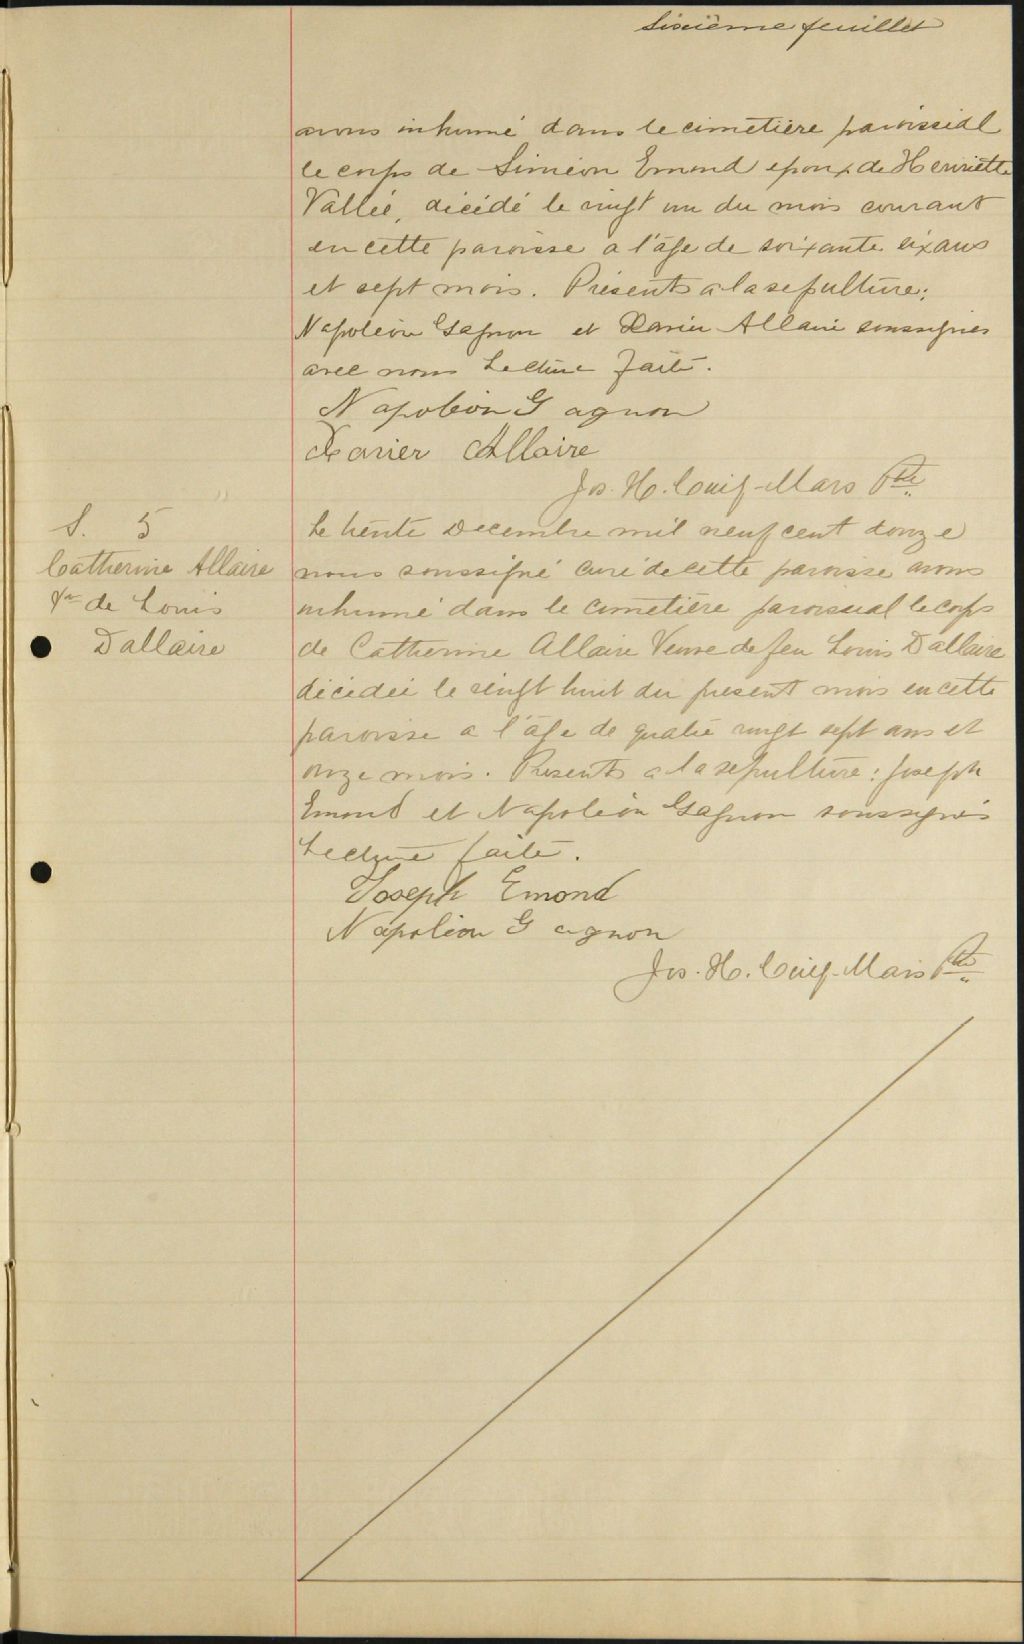 Sixième feuillet
avons inhumé dans le cimetière paroissial
le corps de Siméon Emond epoux de Henriette
Vallée, décédé le vingt un du mois courant
en cette paroisse a l'âge de soixante six ans
et sept mois. Présents a la sepulture:
Napoléon Gagnon et Xavier Allaire soussignés
avec nous Lecture faite.
Napoléon Gagnon
Xavier Allaire
Jos. H. Mars Ptre
S. 5
Catherine Allaire
Vve de Louis
Dallaire
Le trente Decembre mil neuf cent douze
nous soussigné curé de cette paroisse avons
inhumé dans le cimetière paroissial le corps
de Catherine Allaire Veuve de feu Louis Dallaire
décédée le vingt huit du present mois en cette
paroisse a l'âge de quatre vingt sept ans et
onze mois. Présents a la sepulture: Joseph
Emond et Napoléon Gagnon soussignés
Lecture faite.
Joseph Emond
Napoléon Gagnon
Jos. H. Mars Ptre